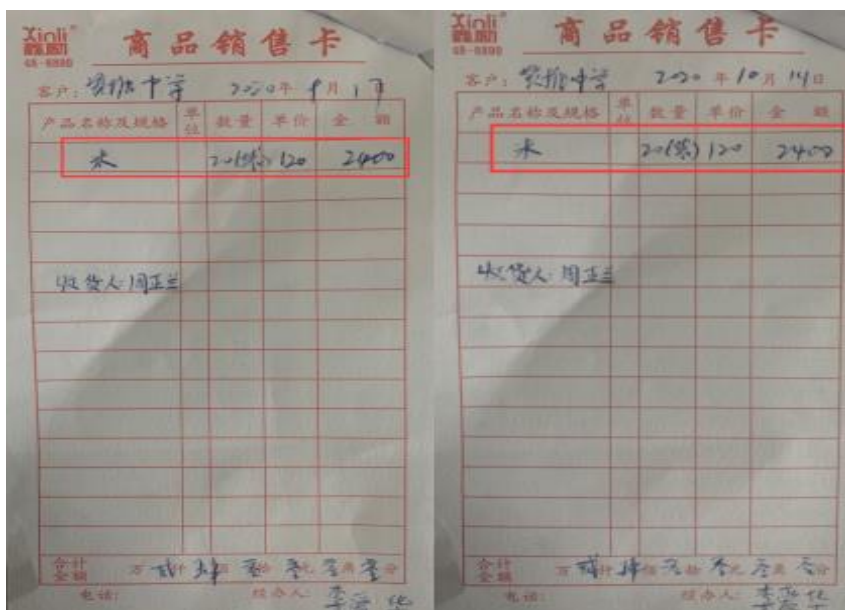 Xinli
鑫励
48-8890
商品销售卡
客户: 中学 2020年9月1日
产品名称及规格 单位 数量 单价 金额
米 20(袋) 120 2400
收货人:周正兰
合计金额 万贰仟肆佰零拾零元零角零分
电话: 经办人:
Xinli
鑫励
48-8890
商品销售卡
客户: 中学 2020年10月14日
产品名称及规格 单位 数量 单价 金额
米 20(袋) 120 2400
收货人:周正兰
合计金额 万贰仟肆佰零拾零元零角零分
电话: 经办人: